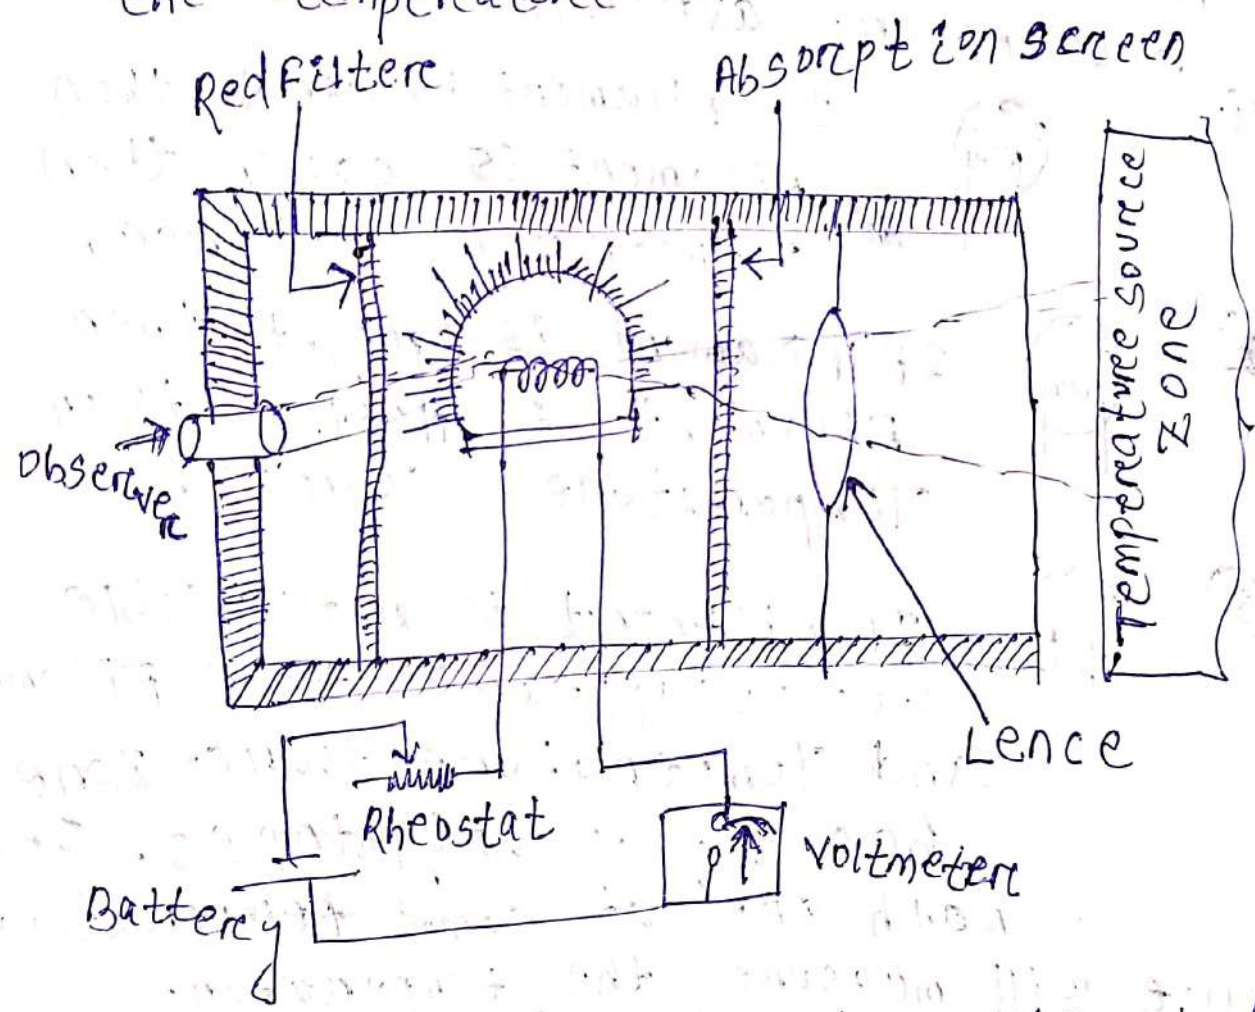 the temperature
Red Filter
Absorption screen
Temperature source
zone
Observer
Lence
Rheostat
Voltmeter
Battery